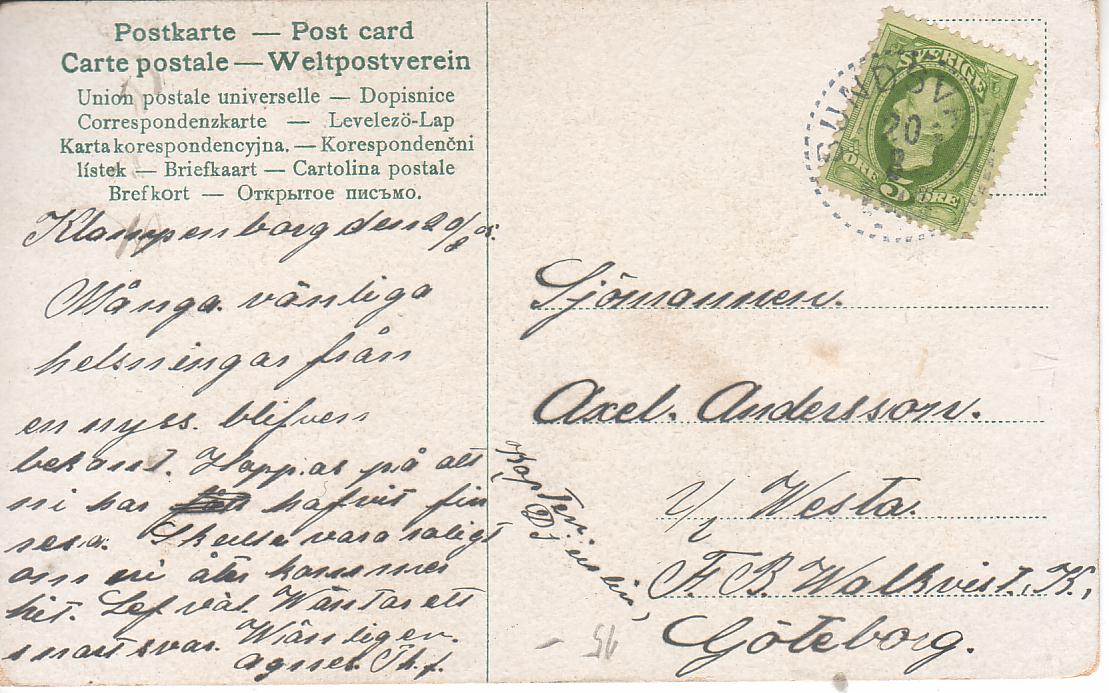 Postkarte — Post card
Carte postale — Weltpostverein
Union postale universelle — Dopisnice
Correspondenzkarte — Levelező-Lap
Karta korespondencyjna. — Korespondenční
lístek — Briefkaart — Cartolina postale
Brefkort — Открытое письмо.
Klampenborg den 20/8 05.
Många vänliga
helsningar från
en nyss. blifven
bekant. Hoppas på att
ni har hafvit fin
resa. Skulle vara roligt
om ni åter kommer
hit. Lef väl. Wäntar ett
snart svar. Wänligen.
Agnes. Th. f.
SVERIGE
ÖRE 5 ÖRE
SUNDSV
20
8
Sjömannen.
Axel. Andersson.
Westa.
F. B. Walkvist. K.,
Göteborg.
Kapten.
15